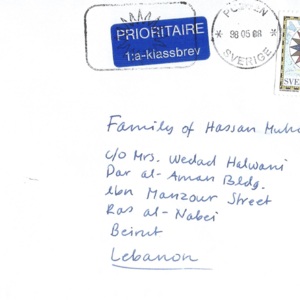 PRIORITAIRE
1:a-klassbrev
98 05 08
SVERIGE
Family of Hassan
c/o Mrs. Wedad Halwani
Dar al-Aman Bldg.
Ibn Manzour Street
Ras al-Nabei
Beirut
Lebanon